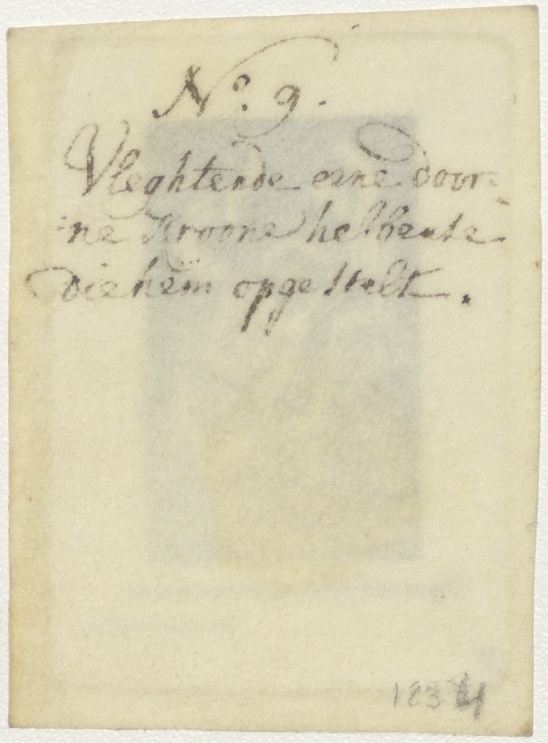 No. 9.
Vleghtende eene door-
ne kroone hebbense
die hem opgestelt.
183